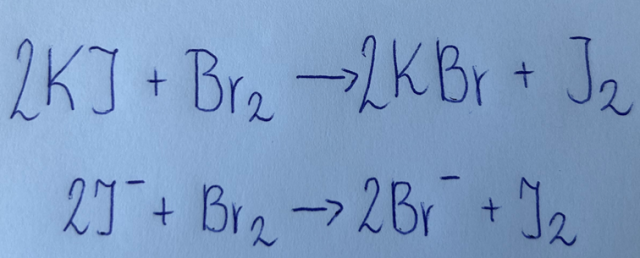 2KJ + Br₂ → 2KBr + J₂
2J⁻ + Br₂ → 2Br⁻ + J₂